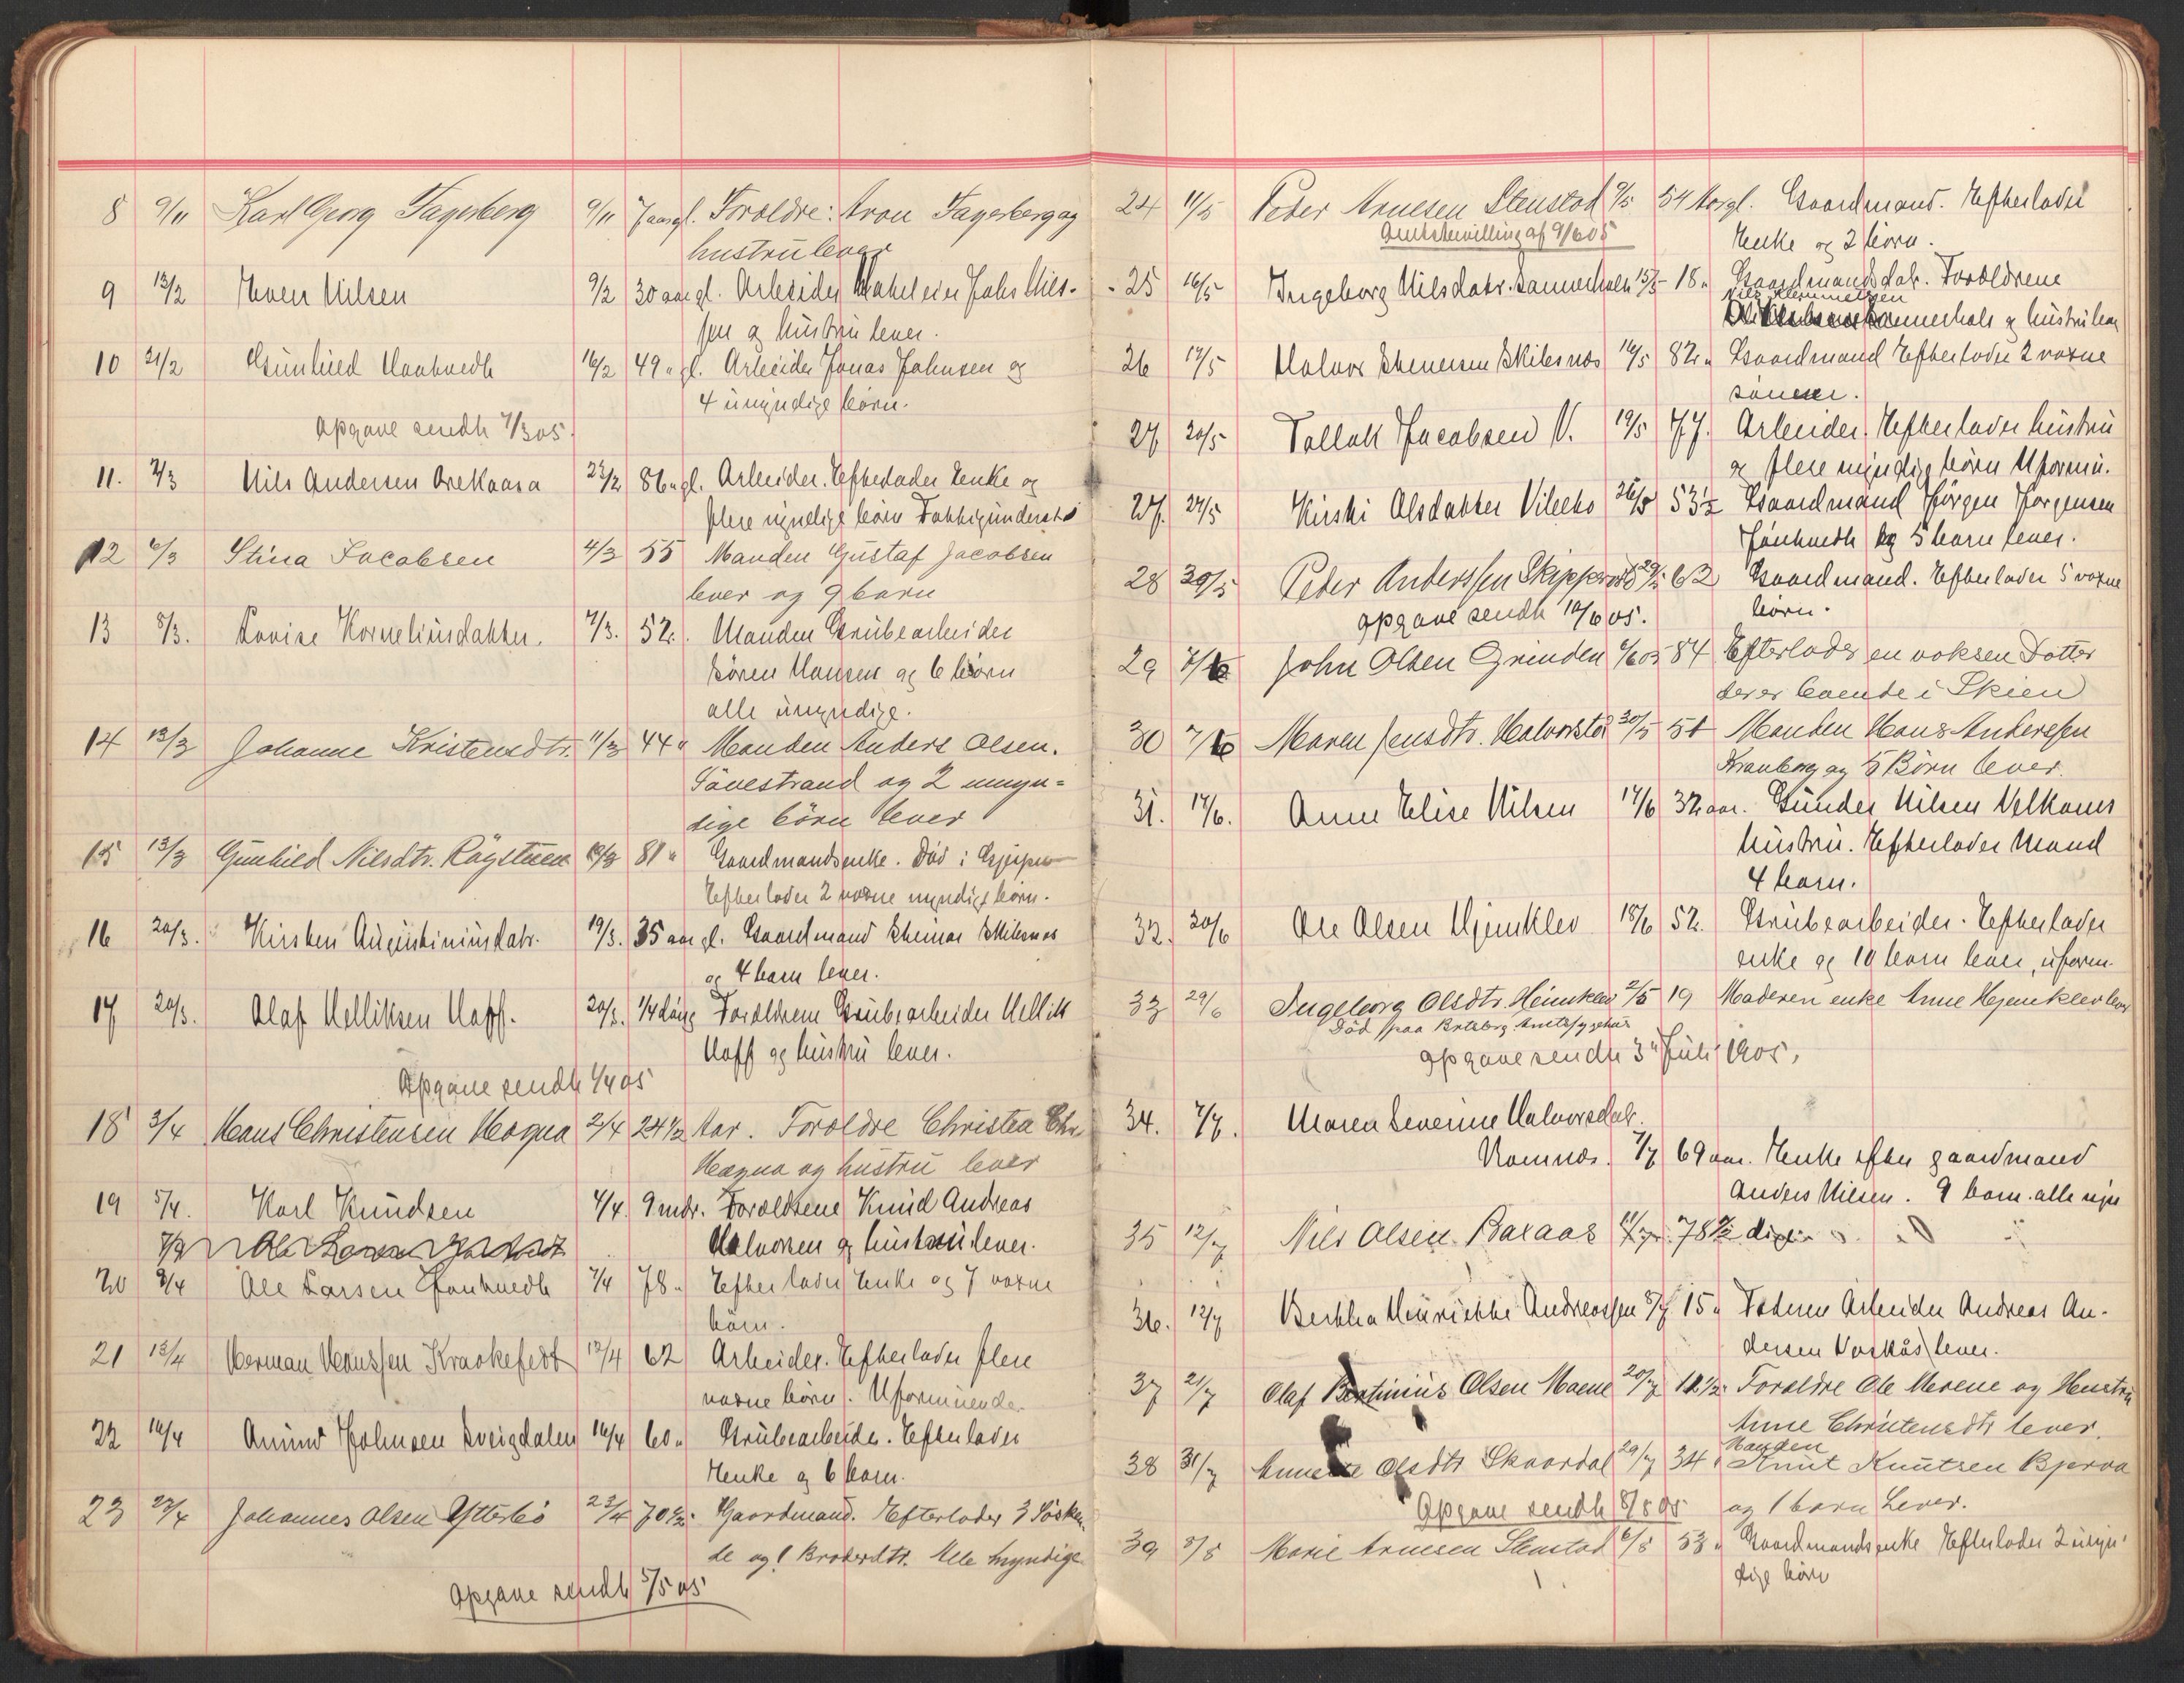 8 9/11 Karl Georg Fagerberg 9/11 7 aargl. Foroldre: Aron Fagerberg og
hustru lever
9 13/2 Even Nilsen 9/2 30 aar gl. Arbeider Johs Nils-
sen og hustru lever.
10 21/2 Gunhild 16/2 49 " gl. Arbeider Jonas Johnsen og
4 umyndige börn.
Opgave sendt 7/3 05.
11. 2/3 Nils Andersen 23/2 86 " gl. Arbeider. Efterlader Enke og
flere myndige börn Fattigunderstö
12 6/3 Stina Jacobsen 4/3 55 Manden Gustaf Jacobsen
lever og 9 barn
13 8/3. Lovise Korneliusdatter. 7/3. 52. Manden Grubearbeider
Sören Hansen og 6 börn
alle umyndige.
14 13/3 Johanne Kristensdtr. 11/3 44 " Manden Anders Olsen.
Sävestrand og 2 umyn=
dige börn lever
15 13/3 Gunhild Nilsdtr. Rögstuen 81 " Gaardmandsenke. Död i Gjerpen
Efterlader 2 voxne myndige börn.
16 20/3. Kirsten Augustiniusdatr. 19/3. 35 aar gl. Gaardmand Steinar Skilesnæs
og 4 barn lever.
17 20/3. Olaf Helliksen Hoff. 20/3. 1/4 Foroldrene Grubearbeider Hellik
Hoff og hustru lever.
Opgave sendt 1/4 05
18 3/4 Hans Christensen Hogna 2/4 24 1/2 Aar. Foroldre Christen Chr.
Hogna og hustru lever
19 5/4. Karl Knudsen 4/4. 9 mdr. Foroldrene Knud Andreas
Halvorsen og hustru lever.
20 8/4 Ole Larsen Jönkvedt 7/4 78 " Efterlader Enke og 7 voxne
börn.
21 13/4 Herman Hanssen Kraakefedt 12/4 62 Arbeider. Efterlader flere
voxne börn. Uformuende.
22 16/4 Amund Johnsen Sveigdalen 16/4 60 " Grubearbeider. Efterlader
Enke og 6 barn.
23 23/4 Johannes Olsen Ytterbö 23/4 70 1/2 Gaardmand. Efterlader 3 Sösken-
de og 1 Broderdtr. Alle myndige
Opgave sendt 5/5 05
24 11/5 Peder Arnesen Stenstad 9/5 54 Aargl. Gaardmand. Efterlader
af 9/6 05
Enke og 2 börn.
25 16/5 Ingeborg Nilsdatr. Sannerholt 15/5 18 " Gaardmandsdatr. Foroldrene
Nils Klemmetsen
Sannerholt og hustru lever
26 17/5 Halvor Steinersen Skilesnæs 16/5 82 " Gaardmand Efterlader 2 voxne
sönner.
27 20/5 Tollak Jacobsen V. 19/5 77. Arbeider. Efterlader hustru
og flere myndige börn Uformu.
27. 27/5 Kirsti Olsdatter 53 1/2 Gaardmand Jörgen Jörgensen
Jönkvedt og 5 barn lever.
28 30/5 Peder Anderssen 29/5 62 Gaardmand. Efterlader 5 voxne
börn.
opgave sendt 10/6 05.
29 7/6 John Olsen Grinden 6/6 05 84 Efterlader en voksen Datter
der er boende i Skien
30 7/6 Maren Jensdtr. Halvorstö 30/5 51 Manden Hans Andersen
Kranberg og 5 Börn lever.
31. 17/6. Anne Elise Nilsen 14/6 32 aar. Gunder Nilsen
hustru. Efterlader Mand
4 barn.
32. 20/6 Ole Olsen Hjemklev 18/6 52. Grubearbeider. Efterlader
enke og 10 barn lever, uform.
33 29/6 Ingeborg Olsdtr. Heimklev 2/5 19 Moderen enke Anne Hjemklev lever
Död paa Bratsberg Amtssygehus
opgave sendt 3" Juli 1905.
34. 7/7. Maren Severine Halvorsdatr.
Romnæs. 7/7 69 aar. Enke efter gaardmand
Anders Nilsen. 9 barn. alle myn
35 12/7 Nils Olsen Baxaas 11/7 78 1/2 dige
36. 12/7 Berthe Henriette Andreassen 8/7 15 " Faderen Arbeider Andreas An-
dersen lever.
37 21/7 Olaf Bertinius Olsen Moene 20/7 12 1/2 Foroldre Ole Moene og Hustru
Anne Christensdtr lever.
38 31/7 Olsdtr Skaardal 29/7 34 " Manden
Knut Knutsen Bjerva
og 1 barn Lever.
Opgave sendt 8/8 05
39 8/8 Marie Arnesen Stenstad 6/8 53 " Gaardmandsenke Efterlader 2 umyn-
dige börn